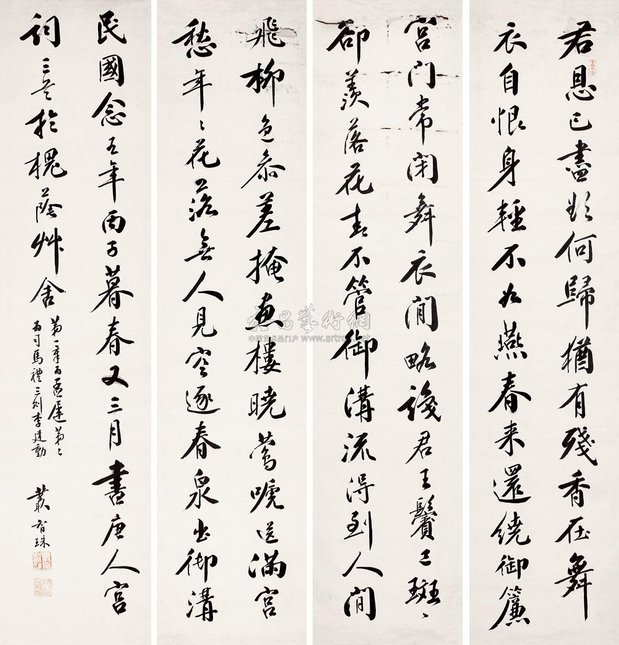 君恩已盡欲何歸猶有殘香在舞
衣自恨身輕不如燕春来還繞御簾
宮門常閉舞衣閒略識君王鬢已斑〻
卻羨落花春不管御溝流得到人間
飛柳色參差掩畫樓曉鶯啼送滿宮
愁年〻花落無人見空逐春泉出御溝
民國念五年丙子暮春又三月書唐人宮
詞三首於槐蔭艸舍
第一章為孟遲第二
為司馬禮三則李建勳
智珠
雅昌藝術網